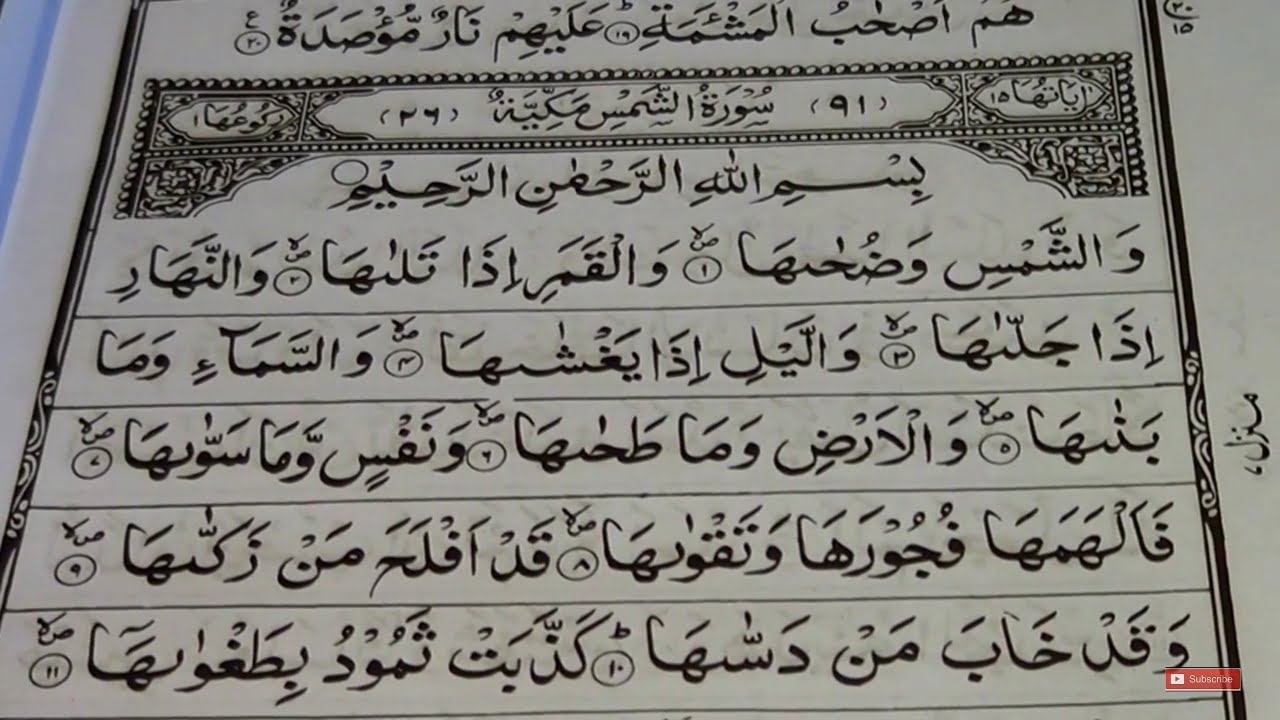 هُمْ اَصْحٰبُ الْمَشْـَٔمَةِ ؕ﴿۱۹﴾ عَلَيْهِمْ نَارٌ مُّؤْصَدَةٌ ﴿۲۰﴾ ع
۲۰
۱۵
اٰيَاتُهَا ۱۵ ﴿۹۱﴾ سُوْرَةُ الشَّمْسِ مَكِّيَّةٌ ﴿۲۶﴾ رُكُوْعُهَا ۱
بِسْمِ اللهِ الرَّحْمٰنِ الرَّحِيْمِ
وَالشَّمْسِ وَضُحٰىهَا ۪ۙ﴿۱﴾ وَالْقَمَرِ اِذَا تَلٰىهَا ۪ۙ﴿۲﴾ وَالنَّهَارِ
اِذَا جَلّٰىهَا ۪ۙ﴿۳﴾ وَالَّيْلِ اِذَا يَغْشٰىهَا ۪ۙ﴿۴﴾ وَالسَّمَآءِ وَمَا
بَنٰىهَا ۪ۙ﴿۵﴾ وَالْاَرْضِ وَمَا طَحٰىهَا ۪ۙ﴿۶﴾ وَنَفْسٍ وَّمَا سَوّٰىهَا ۪ۙ﴿۷﴾
منزل ۷
فَاَلْهَمَهَا فُجُوْرَهَا وَتَقْوٰىهَا ۪ۙ﴿۸﴾ قَدْ اَفْلَحَ مَنْ زَكّٰىهَا ۪ۙ﴿۹﴾
وَقَدْ خَابَ مَنْ دَسّٰىهَا ؕ﴿۱۰﴾ كَذَّبَتْ ثَمُوْدُ بِطَغْوٰىهَاۤ ۪ۙ﴿۱۱﴾
Subscribe